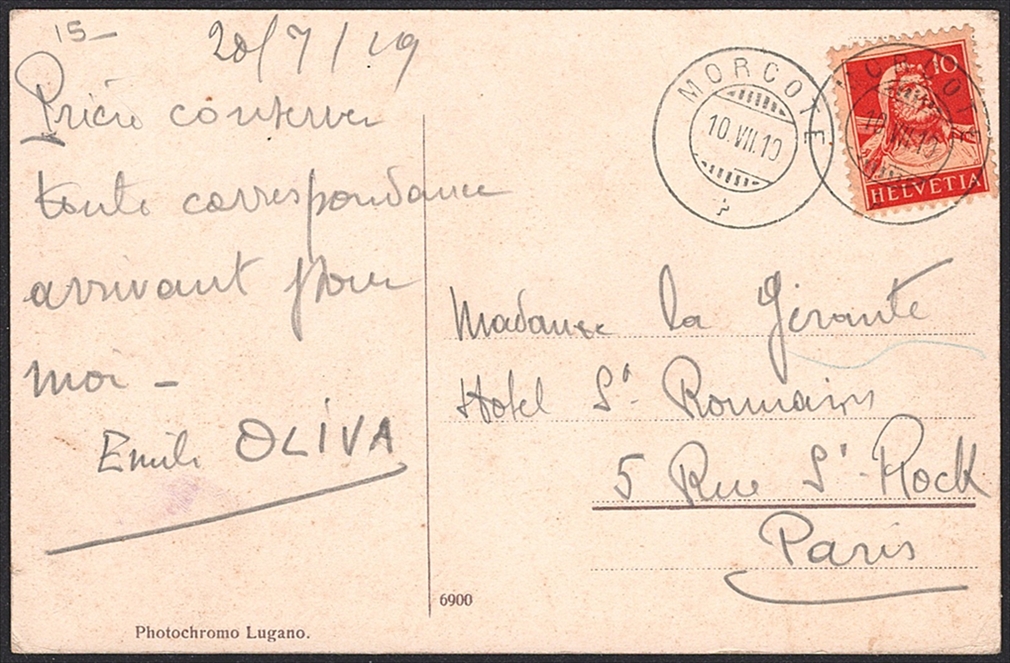 15-
20/7/19
Prière conserver
toute correspondance
arrivant pour
moi -
Emile OLIVA
MORCOTE
10.VII.19
MORCOTE
10.VII.19
10
HELVETIA
Madame la Gérante
Hotel St. Romains
5 Rue St-Rock
Paris
6900
Photochromo Lugano.